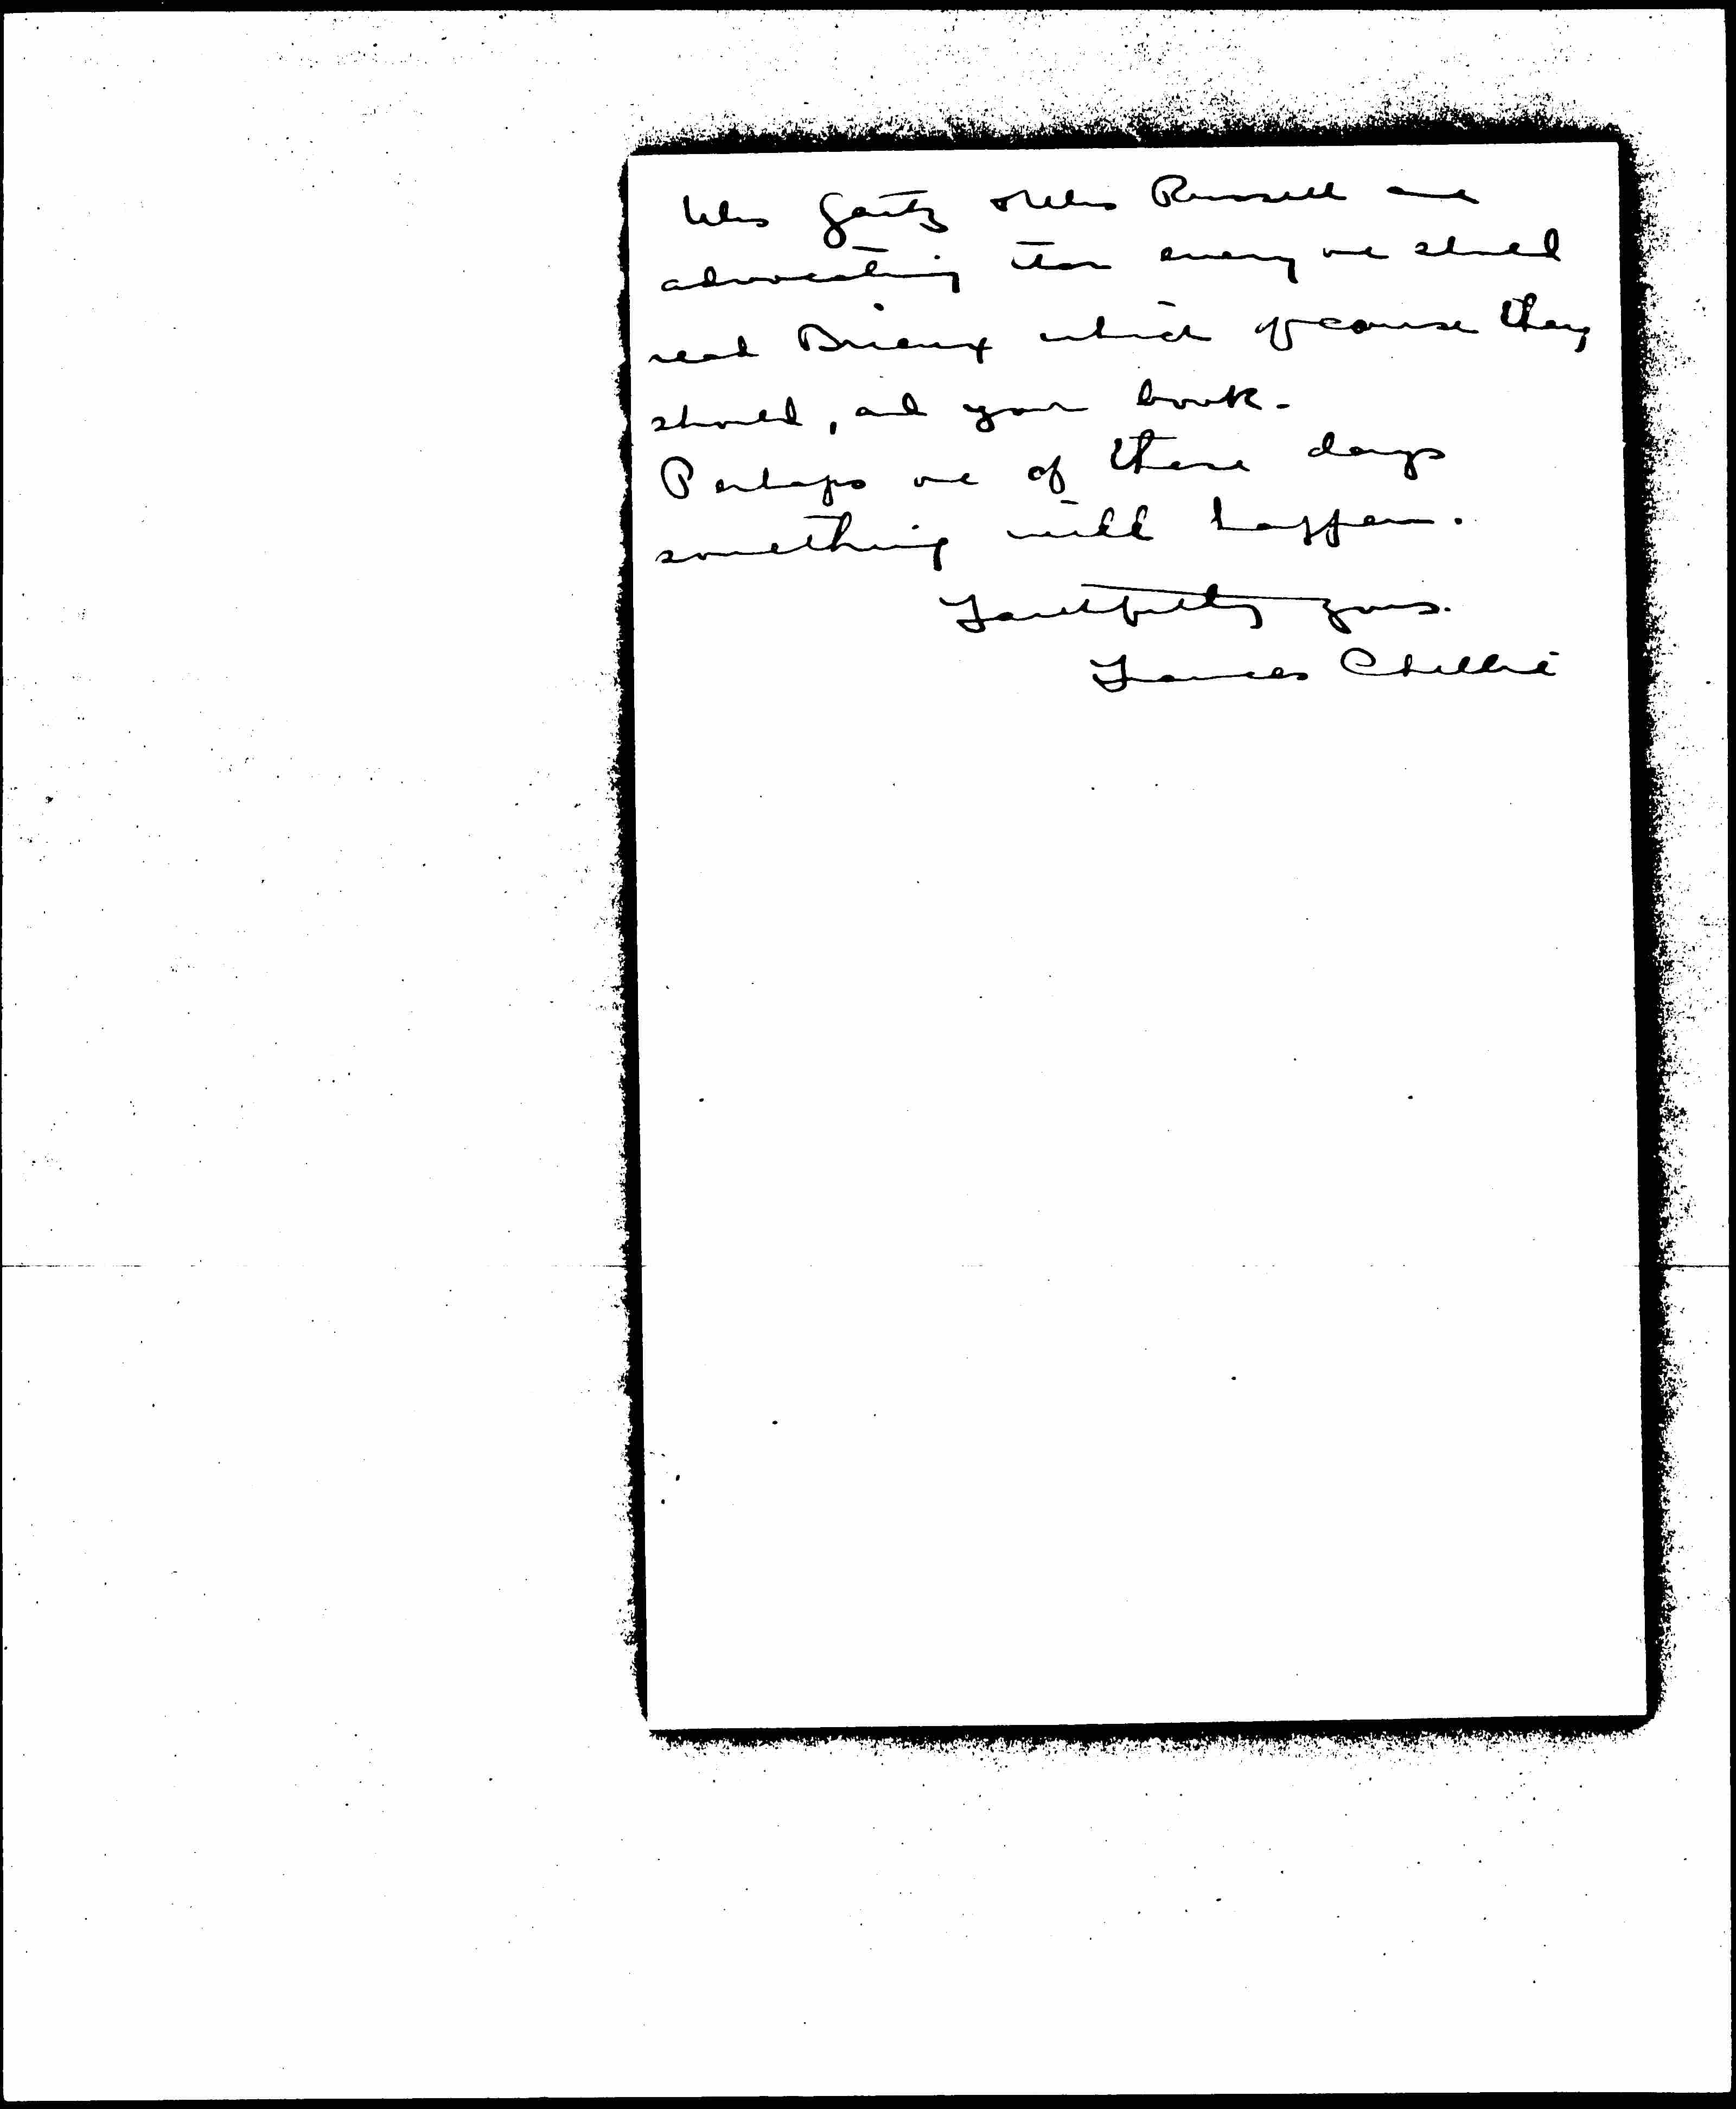 Mrs Gartz & Mrs Russell are
advocating that every one should
read Brieux which of course they
should, and your book -
Perhaps one of these days
something will happen.
Faithfully yours.
Frances